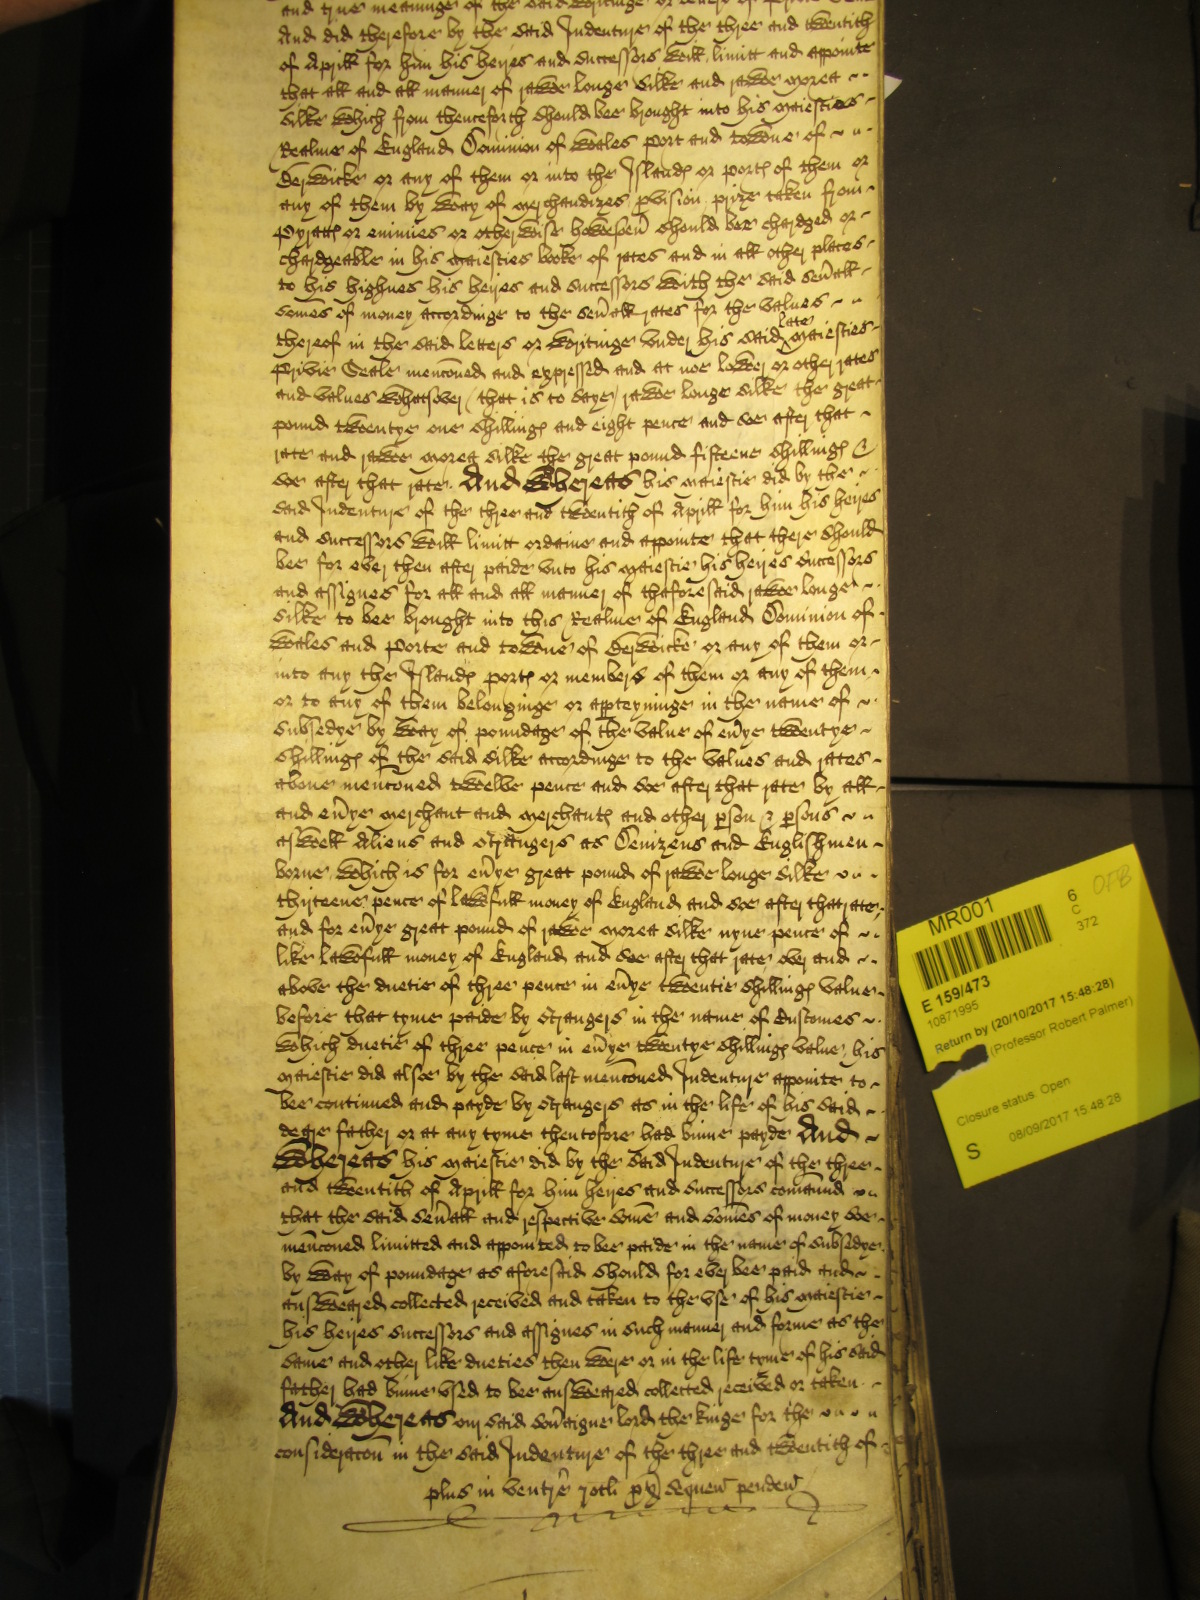 and true meaninge of the said writinge or
And did therefore by the said Indenture of the three and twentith
of Aprill for him his heires and successors will limitt and appointe
that all and all manner of rawe longe silke and rawe morea
silke which from thenceforth should bee brought into his maiesties
Realme of England Dominion of Wales Port and towne of
Berwicke or any of them or into the Islandꝭ or portꝭ of them or
any of them by way of merchandizes pvision prize taken from
Pyratꝭ or enimies or otherwise howesoeṽ should bee chardged or
chardgeable in his maiesties booke of rates and in all other places
to his highnes his heires and successors with the said seṽall
somes of money accordinge to the seṽall rates for the values
thereof in the said letters or writinge vnder his said late maiesties
Privie Seale menc̃oned and expressed and at noe lower or other rates
and values whatsoever (that is to saye) rawe longe silke the great
pound twentye one shillingꝭ and eight pence and soe after that
rate and rawe morea silke the great pound fifteene shillingꝭ &
soe after that rate. And Whereas his maiestie did by the
said Indenture of the three and twentith of Aprill for him his heires
and successors will limitt ordaine and appointe that there should
bee for ever then after paide vnto his maiestie his heires successors
and assignes for all and all manner of thaforesaid rawe longe
silke to bee brought into this Realme of England Dominion of
Wales and Porte and towne of Berwicke or any of them or
into any the Islandꝭ portꝭ or members of them or any of them
or to any of them belonginge or appteyninge in the name of
subsedye by way of poundage of the value of eṽye twentye
shillingꝭ of the said silke accordinge to the values and rates
above menc̃oned twelve pence and soe after that rate by all
and eṽye merchant and merchantꝭ and other ꝑson & ꝑsons
aswell Aliens and Strangers as Denizens and Englishmen
borne. Which is for eṽye great pound of rawe longe silke
thirteene pence of lawfull money of England and soe after that rate,
and for eṽye great pound of rawe morea silke nyne pence of
like lawfull money of England and soe after that rate over and
above the duetie of three pence in eṽye twentie shillingꝭ value
before that tyme paide by Strangers in the name of Customes
Which duetie of three pence in eṽye twentye shillingꝭ value, his
maiestie did alsoe by the said last menc̃oned Indenture appointe to
bee continued and payde by Strangers as in the life of his said
deare father or at any tyme thentofore had binne payde And
Whereas his maiestie did by the said Indenture of the three
and twentith of Aprill for him heires and successors com̃aund
that the said seṽall and respective som̃e and som̃es of money soe
menc̃oned limitted and appointed to bee paide in the name of subsedye
by way of poundage as aforesaid should for ever bee paid and
answeared collected received and taken to the vse of his maiestie
his heires successors and assignes in such manner and forme as the
same and other like dueties then were or in the life tyme of his said
father had binne vsed to bee answeared collected received or taken.
And Whereas our said soṽaigne lord the kinge for the
considerac̃on in the said Indenture of the three and twentith of
plus in ventre rotli ꝑtẽ sequeñ pendeñ
MR001
6
C
372
E 159/473
10871995
Return by (20/10/2017 15:48:28)
(Professor Robert Palmer)
Closure status: Open
S
08/09/2017 15:48:28